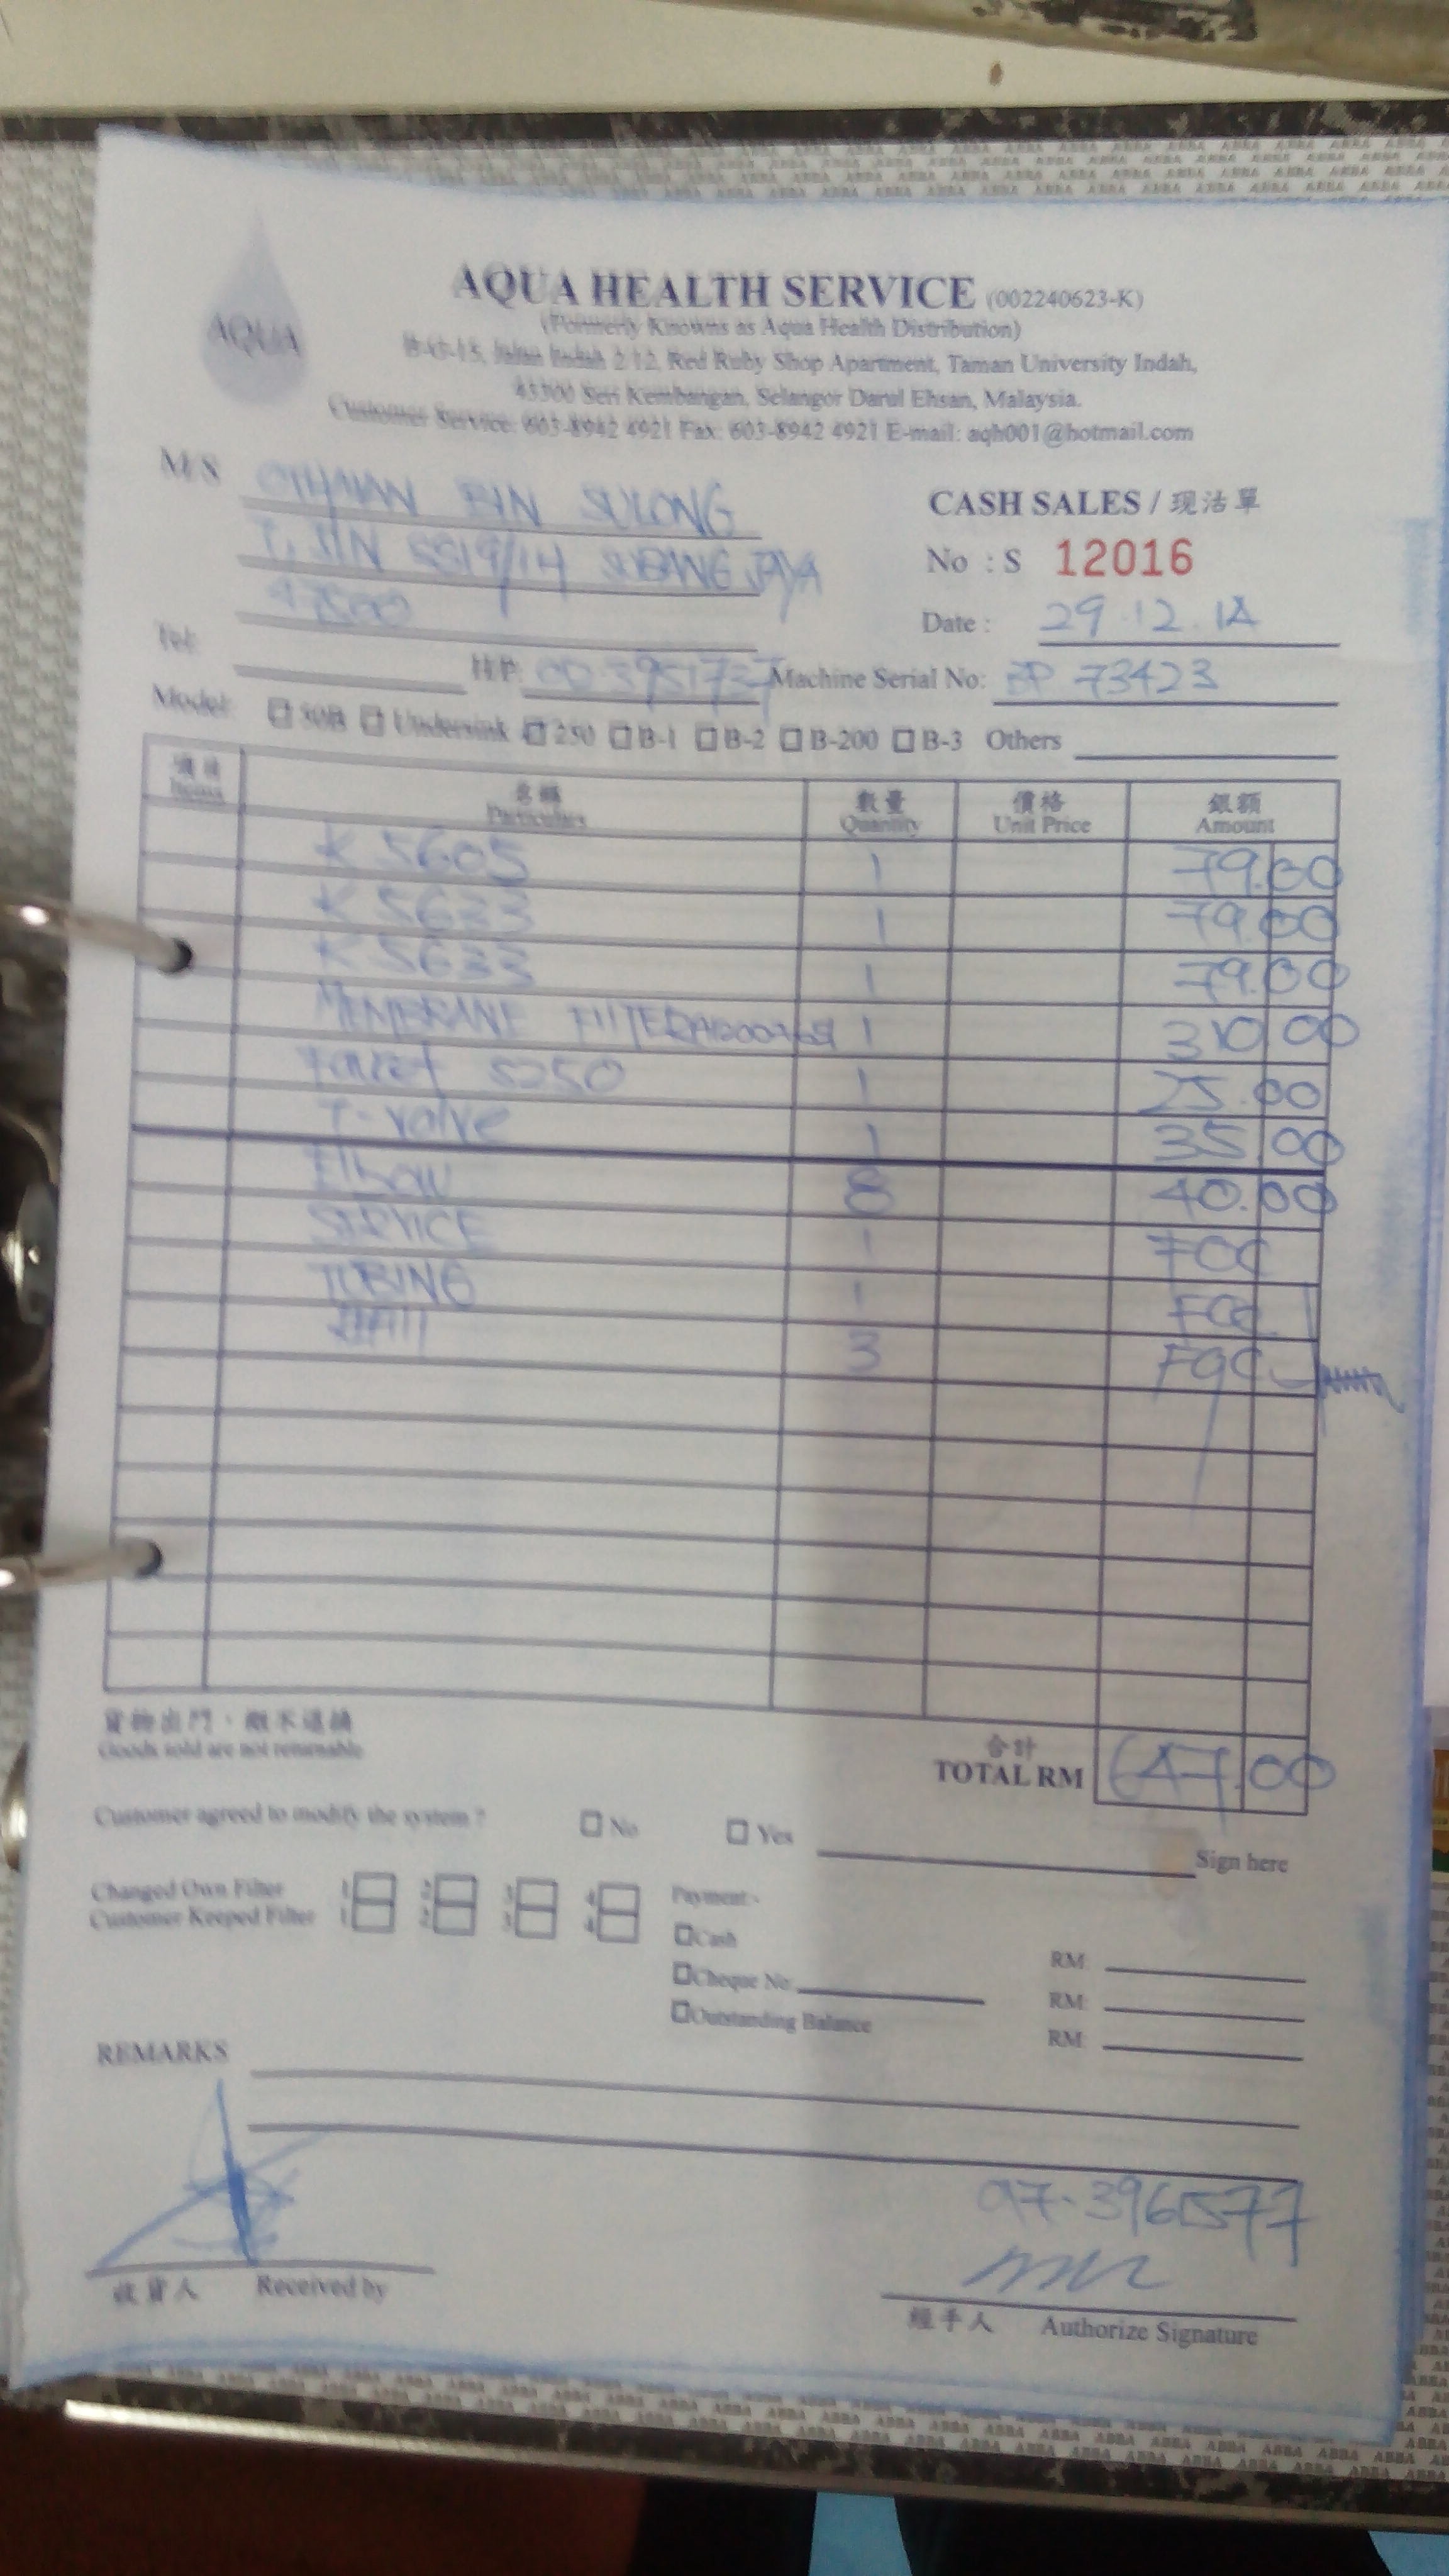 AQUA
AQUA HEALTH SERVICE (002240623-K)
(Formerly Knowns as Aqua Health Distribution)
B-G-15, Jalan Indah 2/12, Red Ruby Shop Apartment, Taman University Indah,
43300 Seri Kembangan, Selangor Darul Ehsan, Malaysia.
Customer Service: 603-8942 4921 Fax: 603-8942 4921 E-mail: aqh001@hotmail.com
M/S BIN SULONG
SS19/1H SUBANG JAYA
47500
CASH SALES / 現沽單
No : S 12016
Date : 29.12.14
Tel: H/P: Machine Serial No: BP 73423
Model: 50B Undersink 250 B-1 B-2 B-200 B-3 Others
項目 名稱 數量 價格 銀額
Items Particulars Quantity Unit Price Amount
K 5605 1 79.00
K 5633 1 79.00
K 5633 1 79.00
MEMBRANE FILTER 1 310.00
Faucet S250 1 25.00
T-valve 1 35.00
Elbow 8 40.00
SERVICE 1 FOC
TUBING 1 FOC
3 FOC
貨物出門，概不退換
Goods sold are not returnable
合計
TOTAL RM 647.00
Customer agreed to modify the system ? No Yes Sign here
Changed Own Filter 1 2 3 4
Customer Keeped Filter 1 2 3 4
Payment:-
Cash RM
Cheque No. RM
Outstanding Balance RM
REMARKS
收貨人 Received by
經手人 Authorize Signature